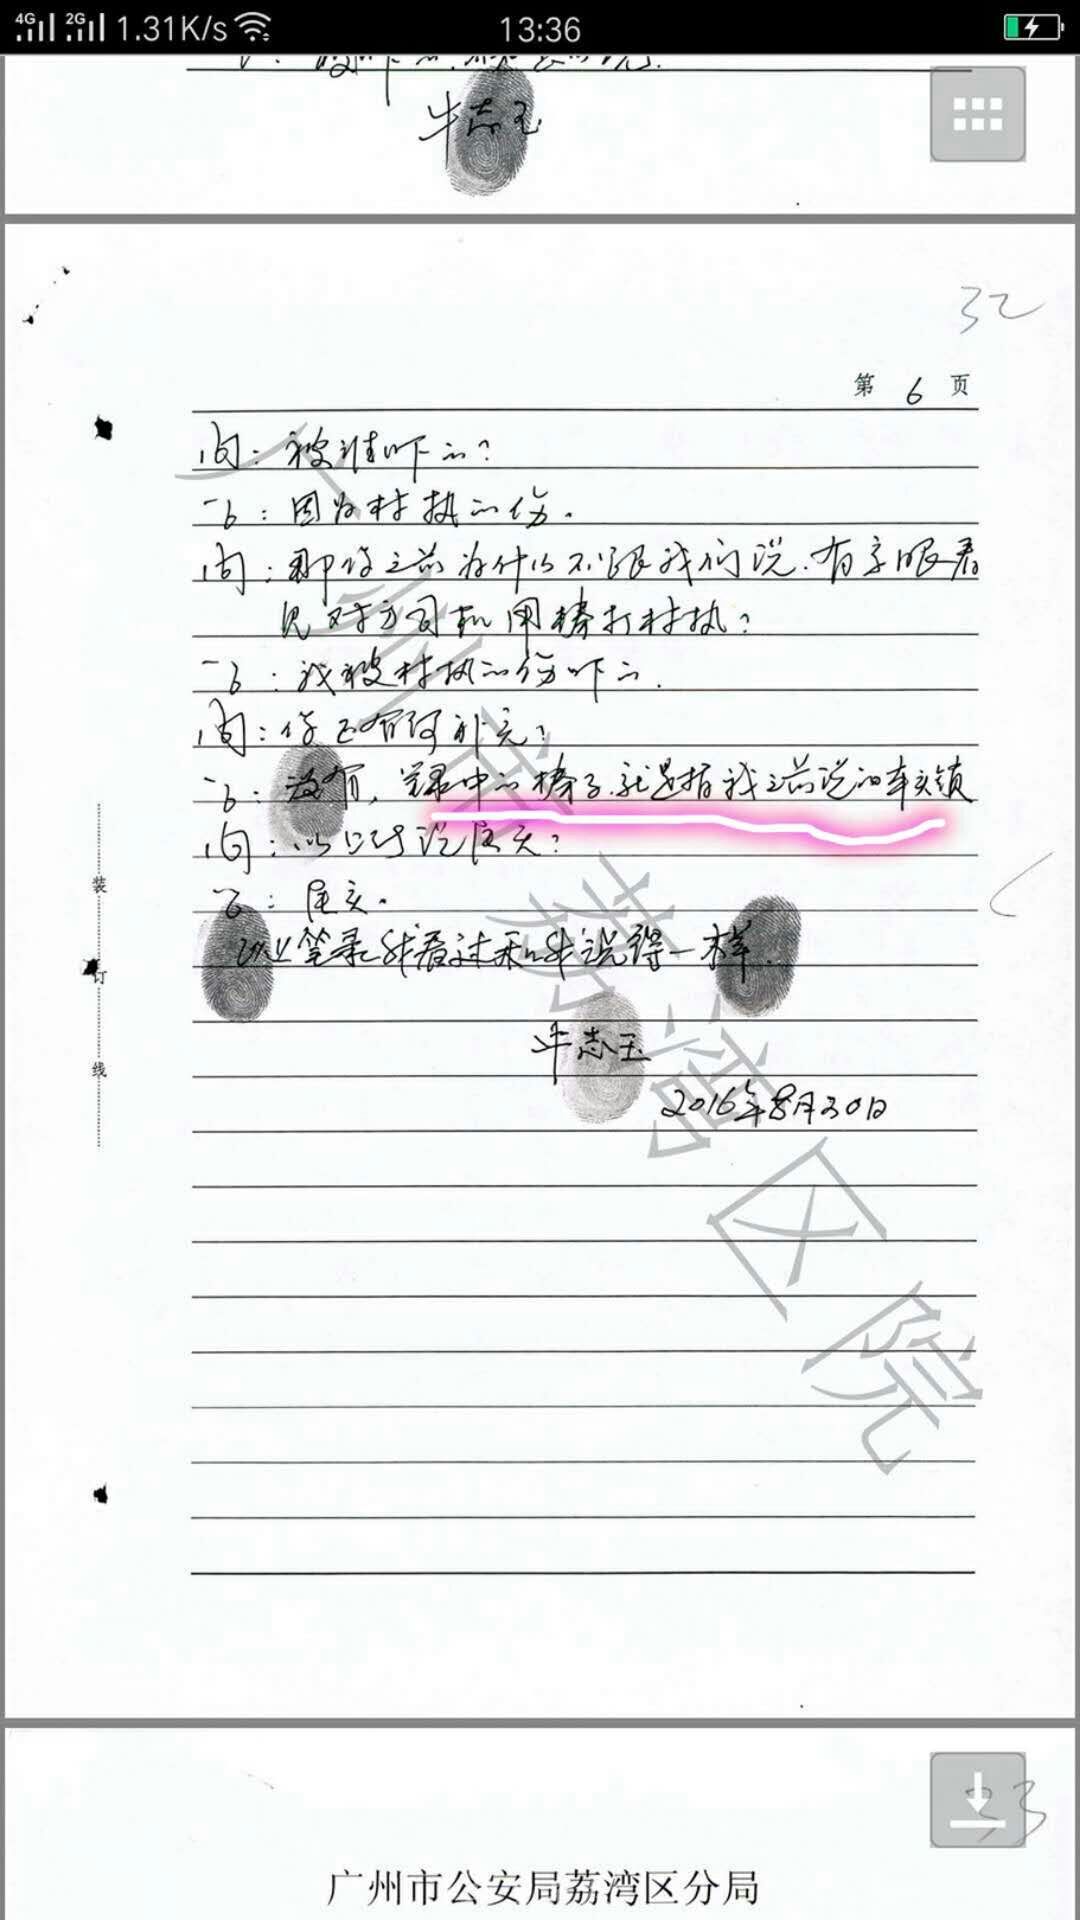 4G 2G 1.31K/s 13:36
牛志玉
32
第 6 页
问：被谁吓的？
答：因为林执的伤。
问：那你之前为什么不跟我们说，有亲眼看
见对方司机用棒打林执？
答：我被林执的伤吓的。
问：你还有何补充？
答：没有，笔录中的棒子就是指我之前说的车头锁
问：以上所说属实？
答：属实。
以上笔录我看过和我说得一样。
牛志玉
2016年8月30日
装
订
线
广州市荔湾区院
33
广州市公安局荔湾区分局